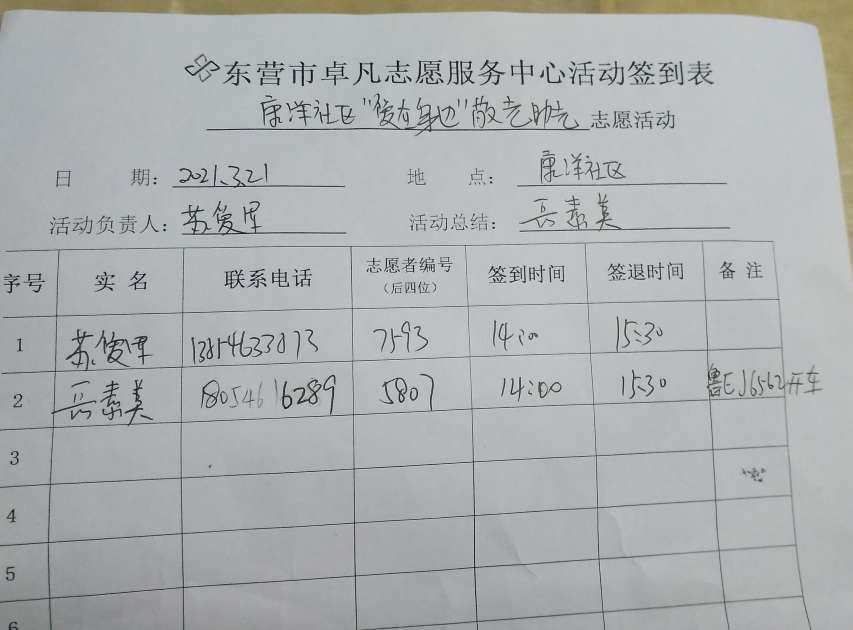 东营市卓凡志愿服务中心活动签到表
康洋社区“爱在身边”散老助老志愿活动
日 期：2021.3.21 地 点：康洋社区
活动负责人：苏俊军 活动总结：岳素美
序号 实名 联系电话 志愿者编号（后四位） 签到时间 签退时间 备注
1 苏俊军 7593 14:00 15:30
2 岳素美 18054616289 5807 14:00 15:30 鲁EJ6562开车
3
4
5
6